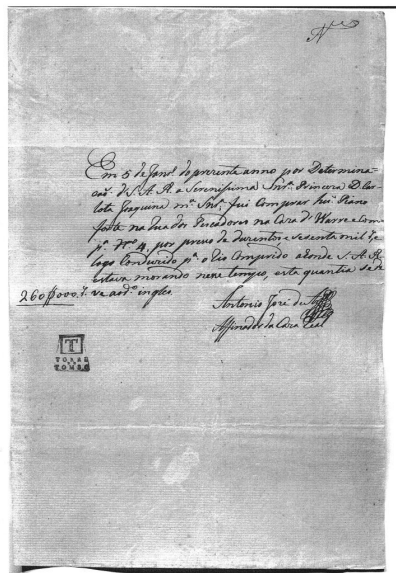 Nº
Em 5 de Janrº do prezente anno por Determina-
cão d'S. A. R. a Serenissima Snrª. Princeza D. Car-
lota Joaquina mª. Snrª. fui Comprar hũ Piano
forte na Rua dos Pescadores na Caza de Warre e Comp
pª. Nº 4. por preço de duzentos e sesenta mil r
logo Conduzido pª. o Rio Comprido adonde S. A. R.
estava morando neste tempo, esta quantia
260$000 r. ingles
Antonio Joze de
Affinador da Caza Real
T
TORRE
DO
TOMBO